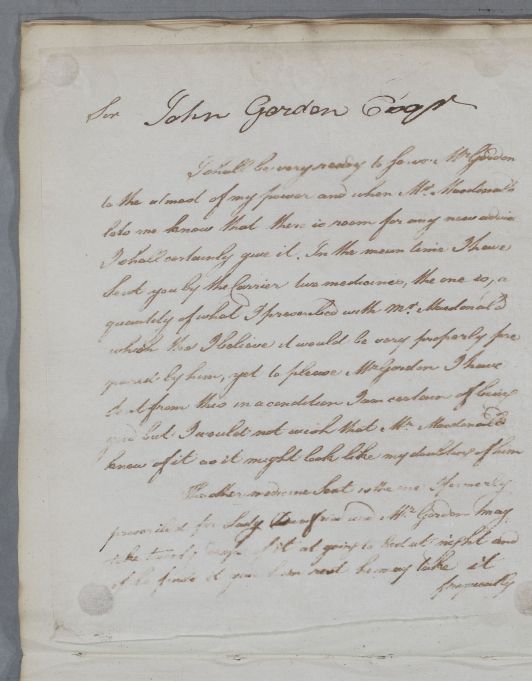 Sir John Gordon Esqr
I shall be very ready to favor Mr Gordon
to the utmost of my power and when Mr. Macdonald
lets me know that there is room for any new advice
I shall certainly give it. In the mean time I have
sent you by the Carrier two medicines, the one is, a
quantity of what I prescribed with Mr. Macdonald
which tho I believe it would be very properly pre
pared by him, yet to please Mr Gordon I have
it from this in a condition I am certain of being
good but I would not wish that Mr. Macdonald
know of it as it might look like my doubting of him
The other medicine sent is the one I formerly
prescribed for Lady and Mr. Gordon may
take twenty drops of it at going to bed at night and
if he finds it give him rest he may take it
frequently